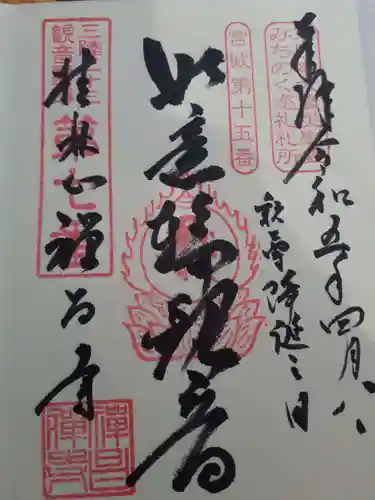 奉拝 令和五年四月八日
釈尊降誕之日
みちのく巡礼札所
宮城第十五番
如意輪観音
三陸三十三
観音
第七番
桂林山禅昌寺
禅昌
禅寺